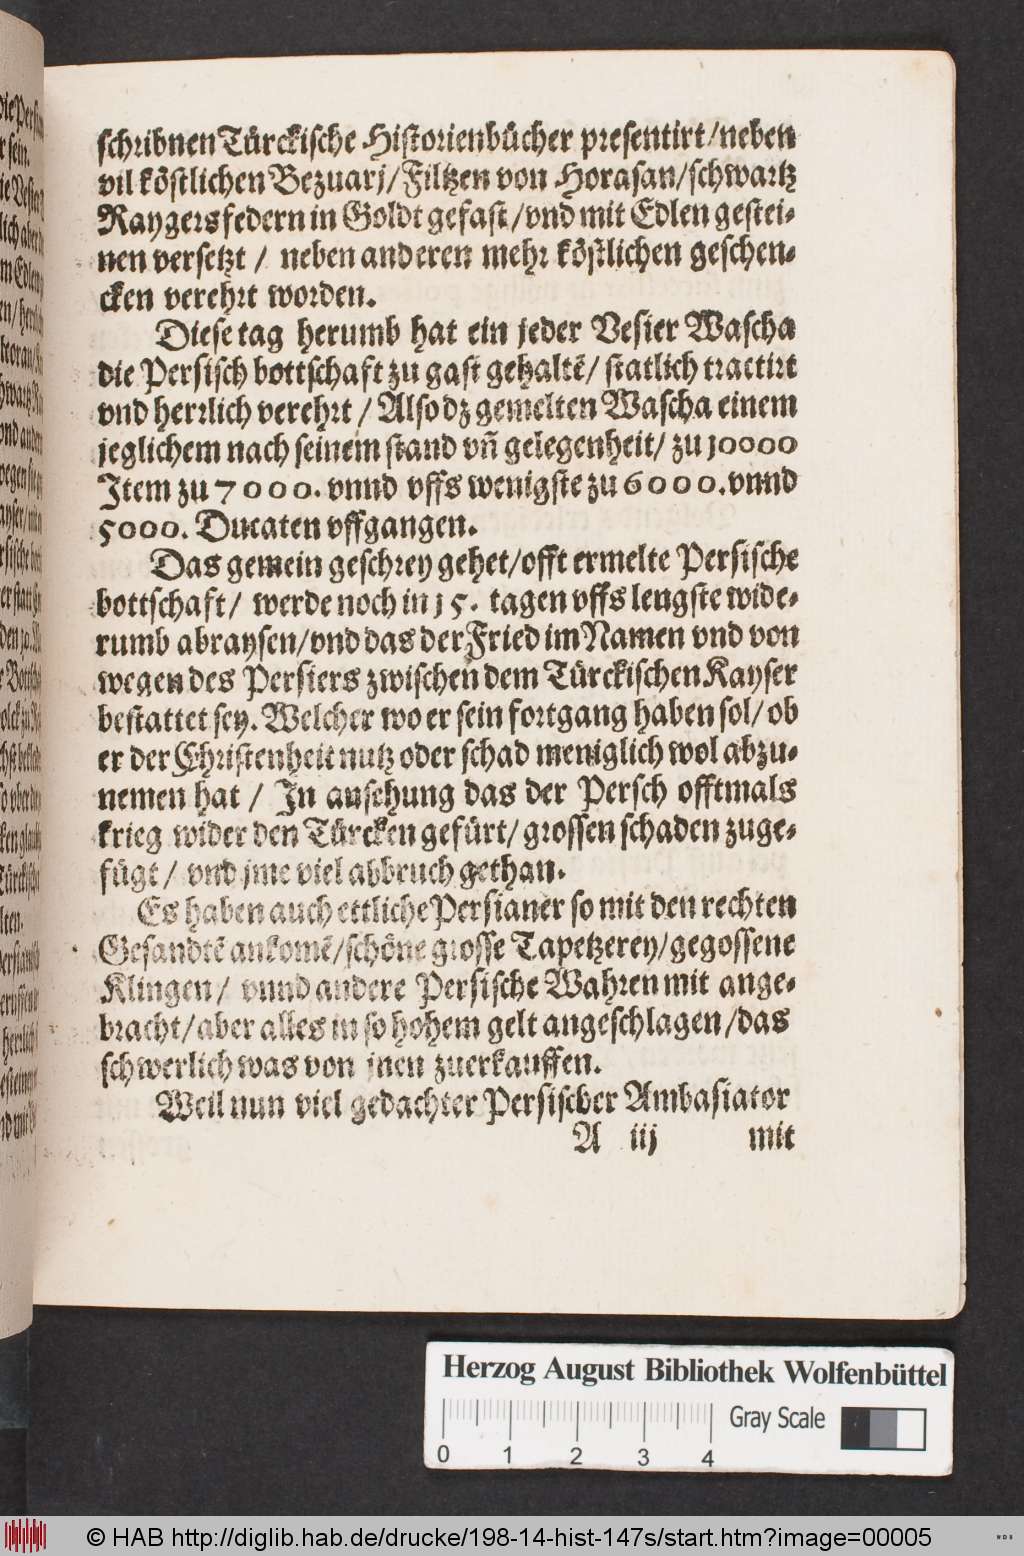 schribnen Türckische Historienbücher presentirt/neben
vil köstlichen Bezuarj/Filtzen von Horasan/schwartz
Raygersfedern in Goldt gefast/vnd mit Edlen gestei-
nen versetzt / neben anderen mehr köstlichen geschen-
cken verehrt worden.
Diese tag herumb hat ein jeder Vesier Wascha
die Persisch bottschaft zu gast gehaltẽ/ statlich tractirt
vnd herrlich verehrt / Also dz gemelten Wascha einem
jeglichem nach seinem stand vñ gelegenheit/ zu 10000
Item zu 7000. vnnd vffs wenigste zu 6000. vnnd
5000. Ducaten vffgangen.
Das gemein geschrey gehet/offt ermelte Persische
bottschaft/ werde noch in 15. tagen vffs lengste wide-
rumb abraysen/vnd das der Fried im Namen vnd von
wegen des Persiers zwischen dem Türckischen Kayser
bestattet sey. Welcher wo er sein fortgang haben sol/ ob
er der Christenheit nutz oder schad meniglich wol abzu-
nemen hat / In ansehung das der Persch offtmals
krieg wider den Türcken gefürt/ grossen schaden zuge-
fügt / vnd jme viel abbruch gethan.
Es haben auch ettliche Persianer so mit den rechten
Gesandtẽ ankomẽ/schöne grosse Tapetzerey/gegossene
Klingen/ vnnd andere Persische Wahren mit ange-
bracht/aber alles in so hohem gelt angeschlagen/das
schwerlich was von jnen zuerkauffen.
Weil nun viel gedachter Persischer Ambasiator
A iij mit
Herzog August Bibliothek Wolfenbüttel
Gray Scale
0 1 2 3 4
© HAB http://diglib.hab.de/drucke/198-14-hist-147s/start.htm?image=00005